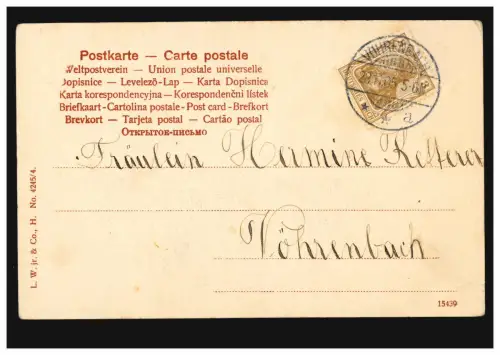 Postkarte — Carte postale
Weltpostverein — Union postale universelle
Dopisnice — Levelező-Lap — Karta Dopisnica
Karta korespondencyjna — Korespondenční lístek
Briefkaart - Cartolina postale - Post card - Brefkort
Brevkort — Tarjeta postal — Cartão postal
Открытое-письмо
VÖHRENBACH
Fräulein Hermine Ketterer
Vöhrenbach
L. W. jr. & Co., H. No. 4245/4.
15439